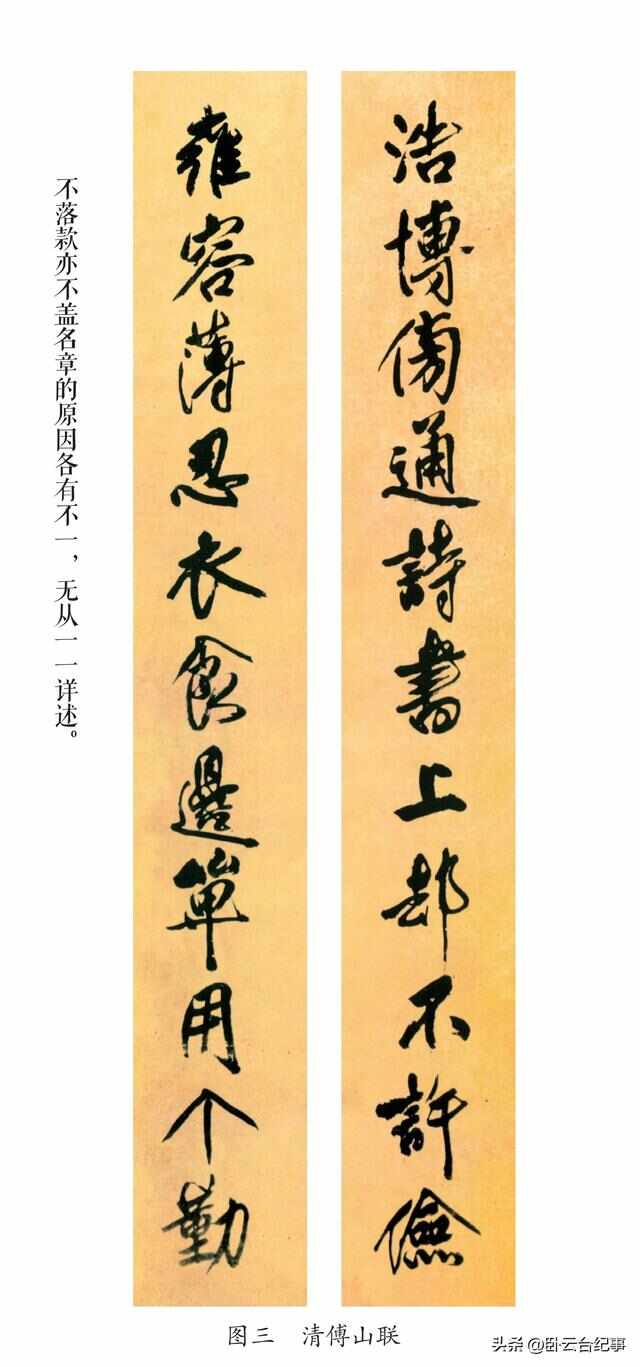 浩博傍通詩書上却不許儉
雍容薄忍衣食邊單用个勤
不落款亦不盖名章的原因各有不一，无从一一详述。
图三　清傅山联
头条@卧云台纪事